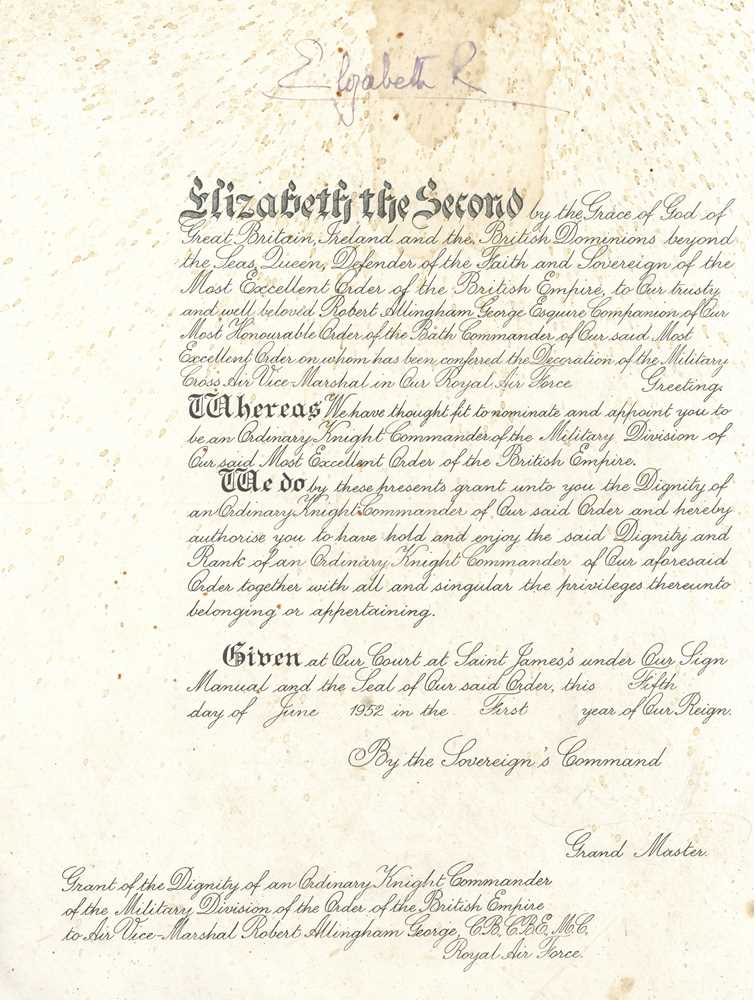 Elizabeth R
Elizabeth the Second by the Grace of God of
Great Britain, Ireland and the British Dominions beyond
the Seas, Queen, Defender of the Faith and Sovereign of the
Most Excellent Order of the British Empire, to Our trusty
and well beloved Robert Allingham George Esquire Companion of Our
Most Honourable Order of the Bath Commander of Our said Most
Excellent Order on whom has been conferred the Decoration of the Military
Cross Air Vice-Marshal in Our Royal Air Force Greeting.
Whereas We have thought fit to nominate and appoint you to
be an Ordinary Knight Commander of the Military Division of
Our said Most Excellent Order of the British Empire.
We do by these presents grant unto you the Dignity of
an Ordinary Knight Commander of Our said Order and hereby
authorise you to have hold and enjoy the said Dignity and
Rank of an Ordinary Knight Commander of Our aforesaid
Order together with all and singular the privileges thereunto
belonging or appertaining.
Given at Our Court at Saint James's under Our Sign
Manual and the Seal of Our said Order, this Fifth
day of June 1952 in the First year of Our Reign.
By the Sovereign's Command
Grand Master.
Grant of the Dignity of an Ordinary Knight Commander
of the Military Division of the Order of the British Empire
to Air Vice-Marshal Robert Allingham George, C.B., C.B.E., M.C.
Royal Air Force.